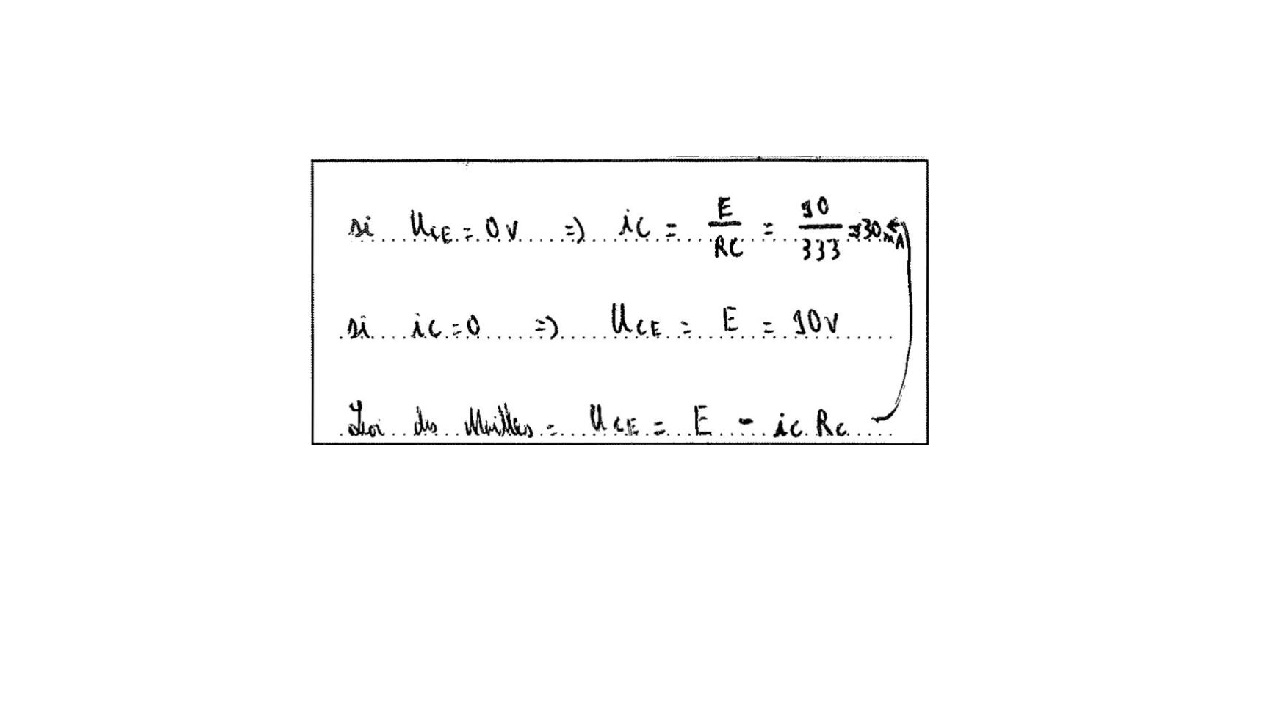 si UCE = 0V => iC = E/RC = 10/333 = 30mA
si iC = 0 => UCE = E = 10V
Loi des Mailles = UCE = E - iC RC